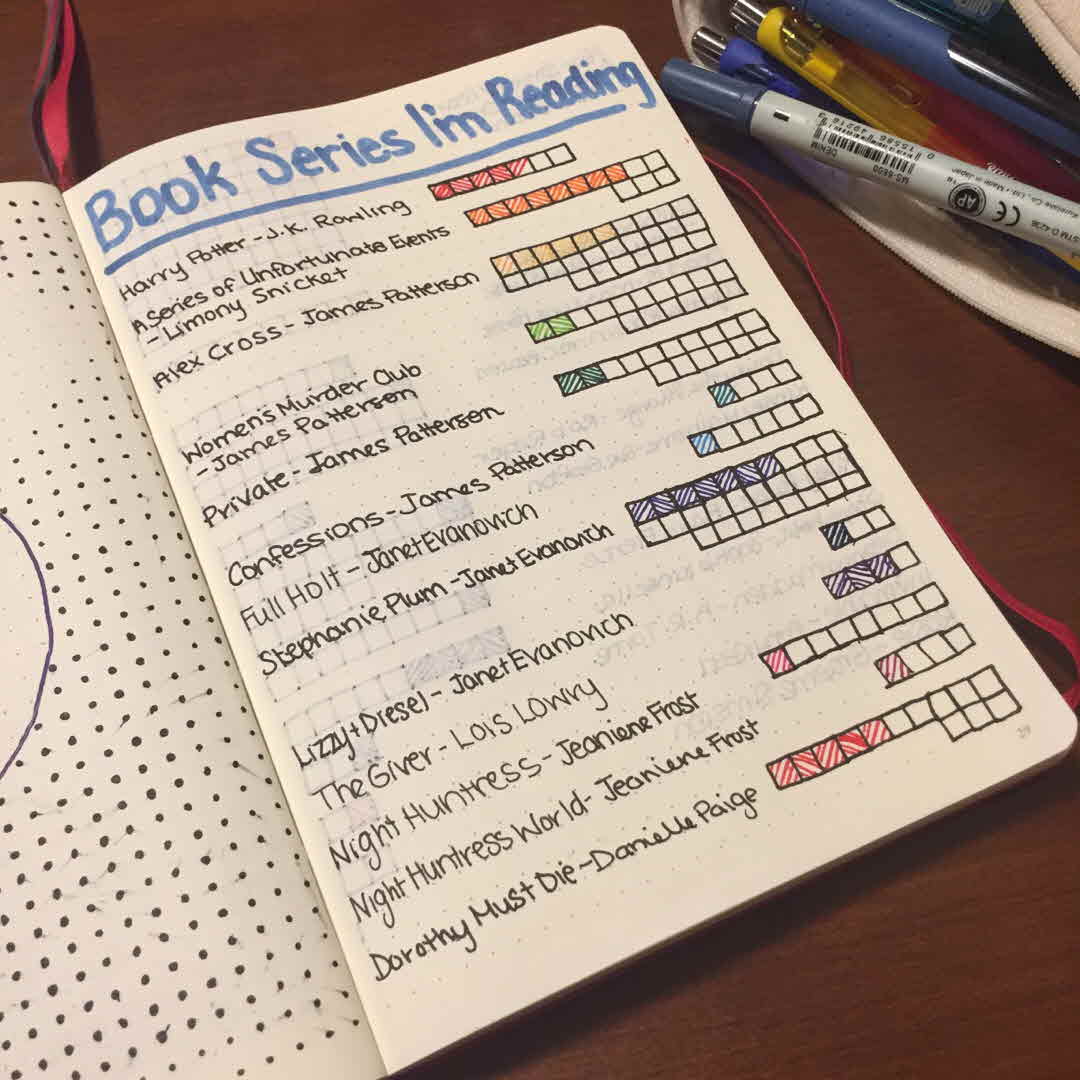 Book Series I'm Reading
Harry Potter - J.K. Rowling
A Series of Unfortunate Events
- Limony Snicket
Alex Cross - James Patterson
Women's Murder Club
- James Patterson
Private - James Patterson
Confessions - James Patterson
Full Holt - Janet Evanovich
Stephanie Plum - Janet Evanovich
Lizzy + Diesel - Janet Evanovich
The Giver - Lois Lowry
Night Huntress - Jeaniene Frost
Night Huntress World - Jeaniene Frost
Dorothy Must Die - Danielle Paige
DENIM
MS-6600
AP
CE